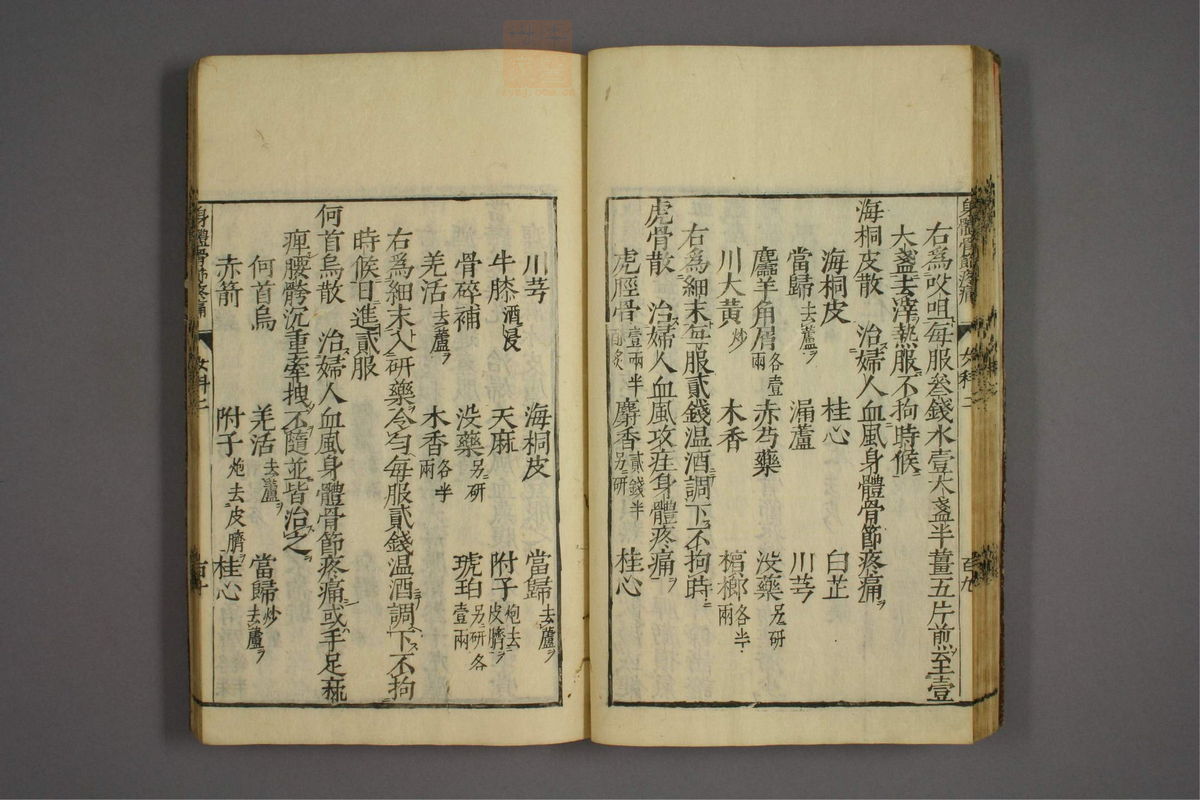 身體骨節疼痛 女科二 百九
右爲㕮咀每服叄錢水壹大盞半薑五片煎至壹
大盞去滓熱服不拘時候
海桐皮散 治婦人血風身體骨節疼痛
海桐皮 桂心 白芷
當歸去蘆ヲ 漏蘆 川芎
羚羊角屑各壹兩 赤芍藥 沒藥另ニ研
川大黃炒 木香 檳榔各半兩
右為細末每服貳錢温酒調下不拘時
虎骨散 治婦人血風攻疰身體疼痛
虎脛骨壹兩半酥炙 麝香貳錢半另ニ研 桂心
川芎 海桐皮 當歸去蘆ヲ
牛膝酒浸 天麻 附子炮去皮臍
骨碎補 没藥各半另ニ研 琥珀另ニ研各壹兩
羌活去蘆ヲ 木香兩
右爲細末入研藥令勻每服貳錢温酒調下不拘
時候日進貳服
何首烏散 治婦人血風身體骨節疼痛或手足𤸷
痺腰胯沉重牽拽不隨並皆治之
何首烏 羌活去蘆ヲ 當歸炒去蘆ヲ
赤箭 附子炮去皮臍ヲ 桂心
身體骨節疼痛 女科二 百十